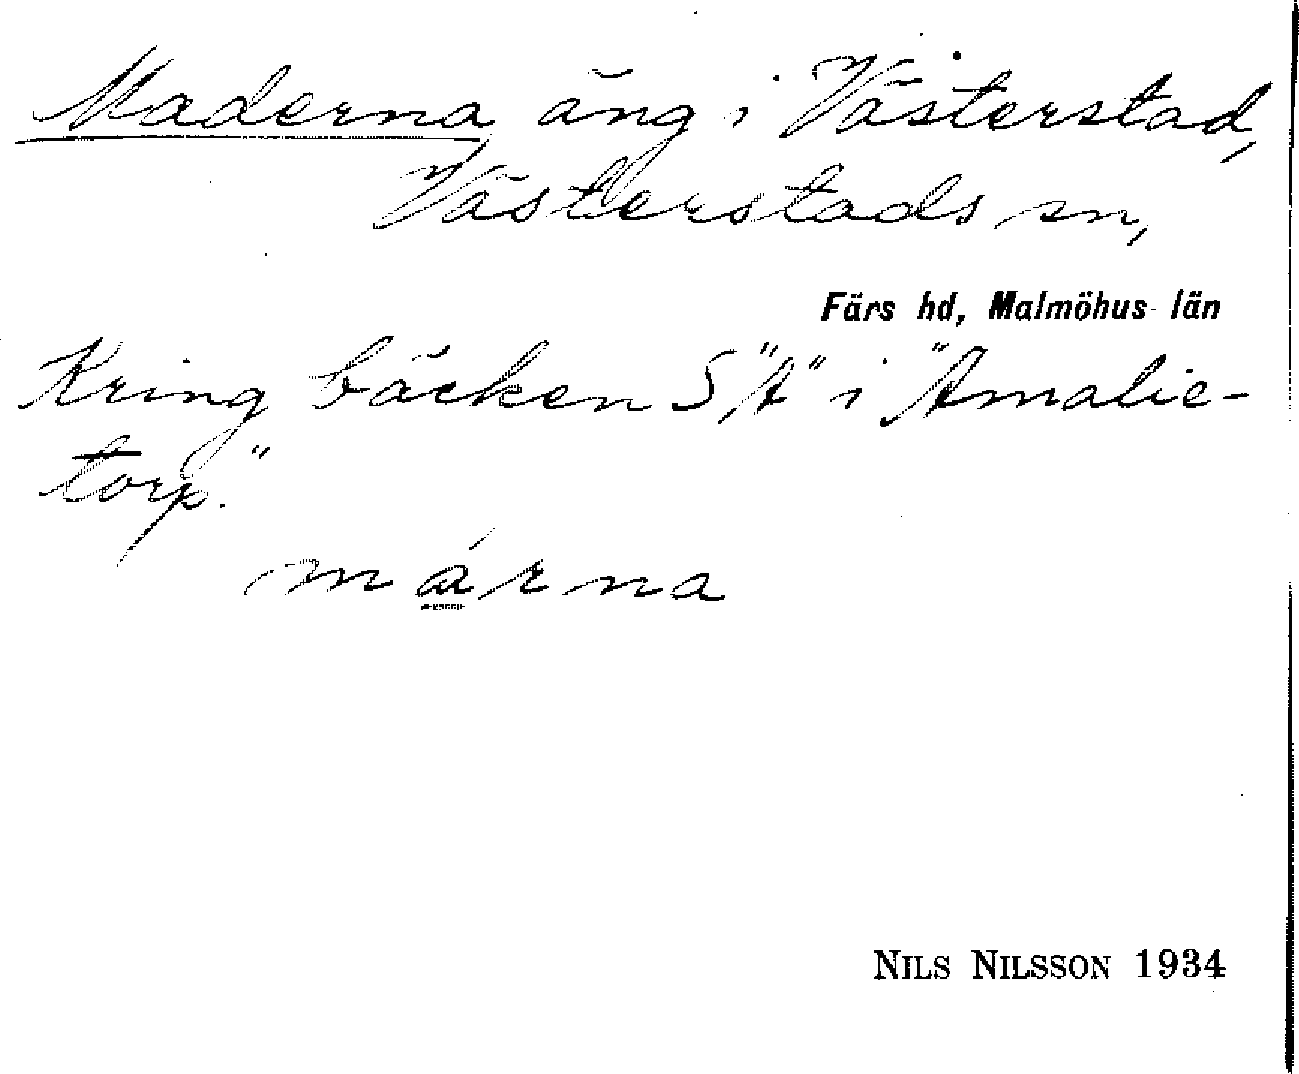 Maderna äng i Västerstad,
Västerstads sn,
Färs hd, Malmöhus län
Kring bäcken S "A" i "Amalie-
torp."
márna
NILS NILSSON 1934